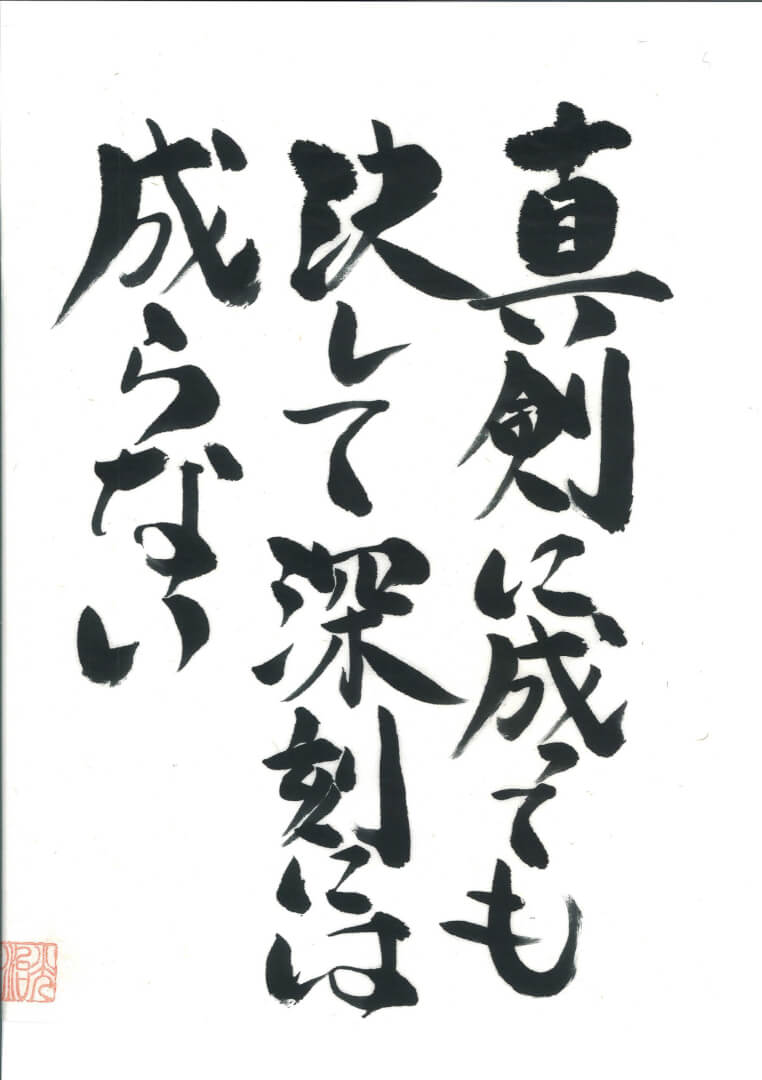 真剣に成っても
決して深刻には
成らない